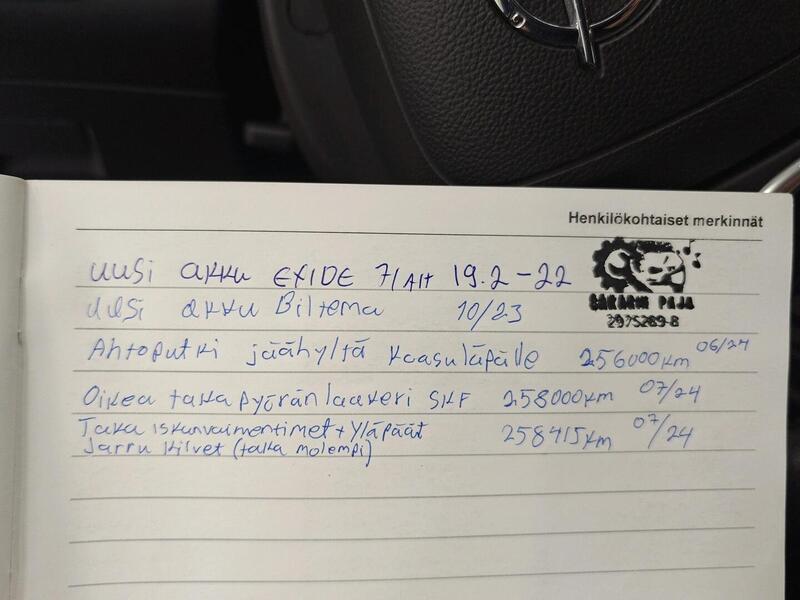 Henkilökohtaiset merkinnät
uusi akku EXIDE 19.2-22
SARARIN PAJA
2975289-8
uusi akku Biltema 10/23
Ahtoputki jäähyltä kaasuläpälle 256000km 06/24
Oikea takapyöränlaakeri SKF 258000km 07/24
Taka iskunvaimentimet + Yläpäät 258415km 07/24
Jarru kilvet (taka molempi)